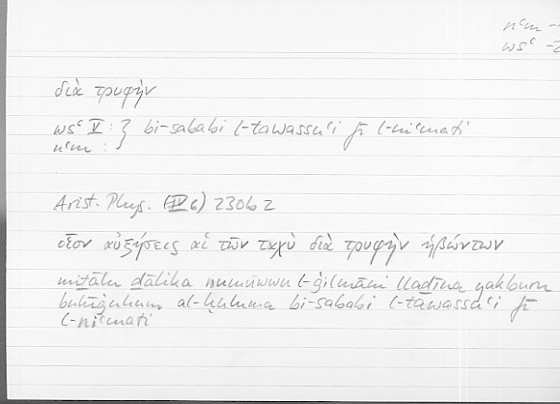 nʿm –
wsʿ –
διὰ τρυφὴν
wsʿ V : } bi-sababi l-tawassuʿi fī l-niʿmati
nʿm : }
Arist. Phys. 230b 2
οἷον αὐξήσεις αἱ τῶν ταχὺ διὰ τρυφὴν ἡβώντων
miṯālu ḏālika numūwwu l-ġilmāni llaḏīna yakburu
bulūġuhum al-ḥuluma bi-sababi l-tawassuʿi fī
l-niʿmati